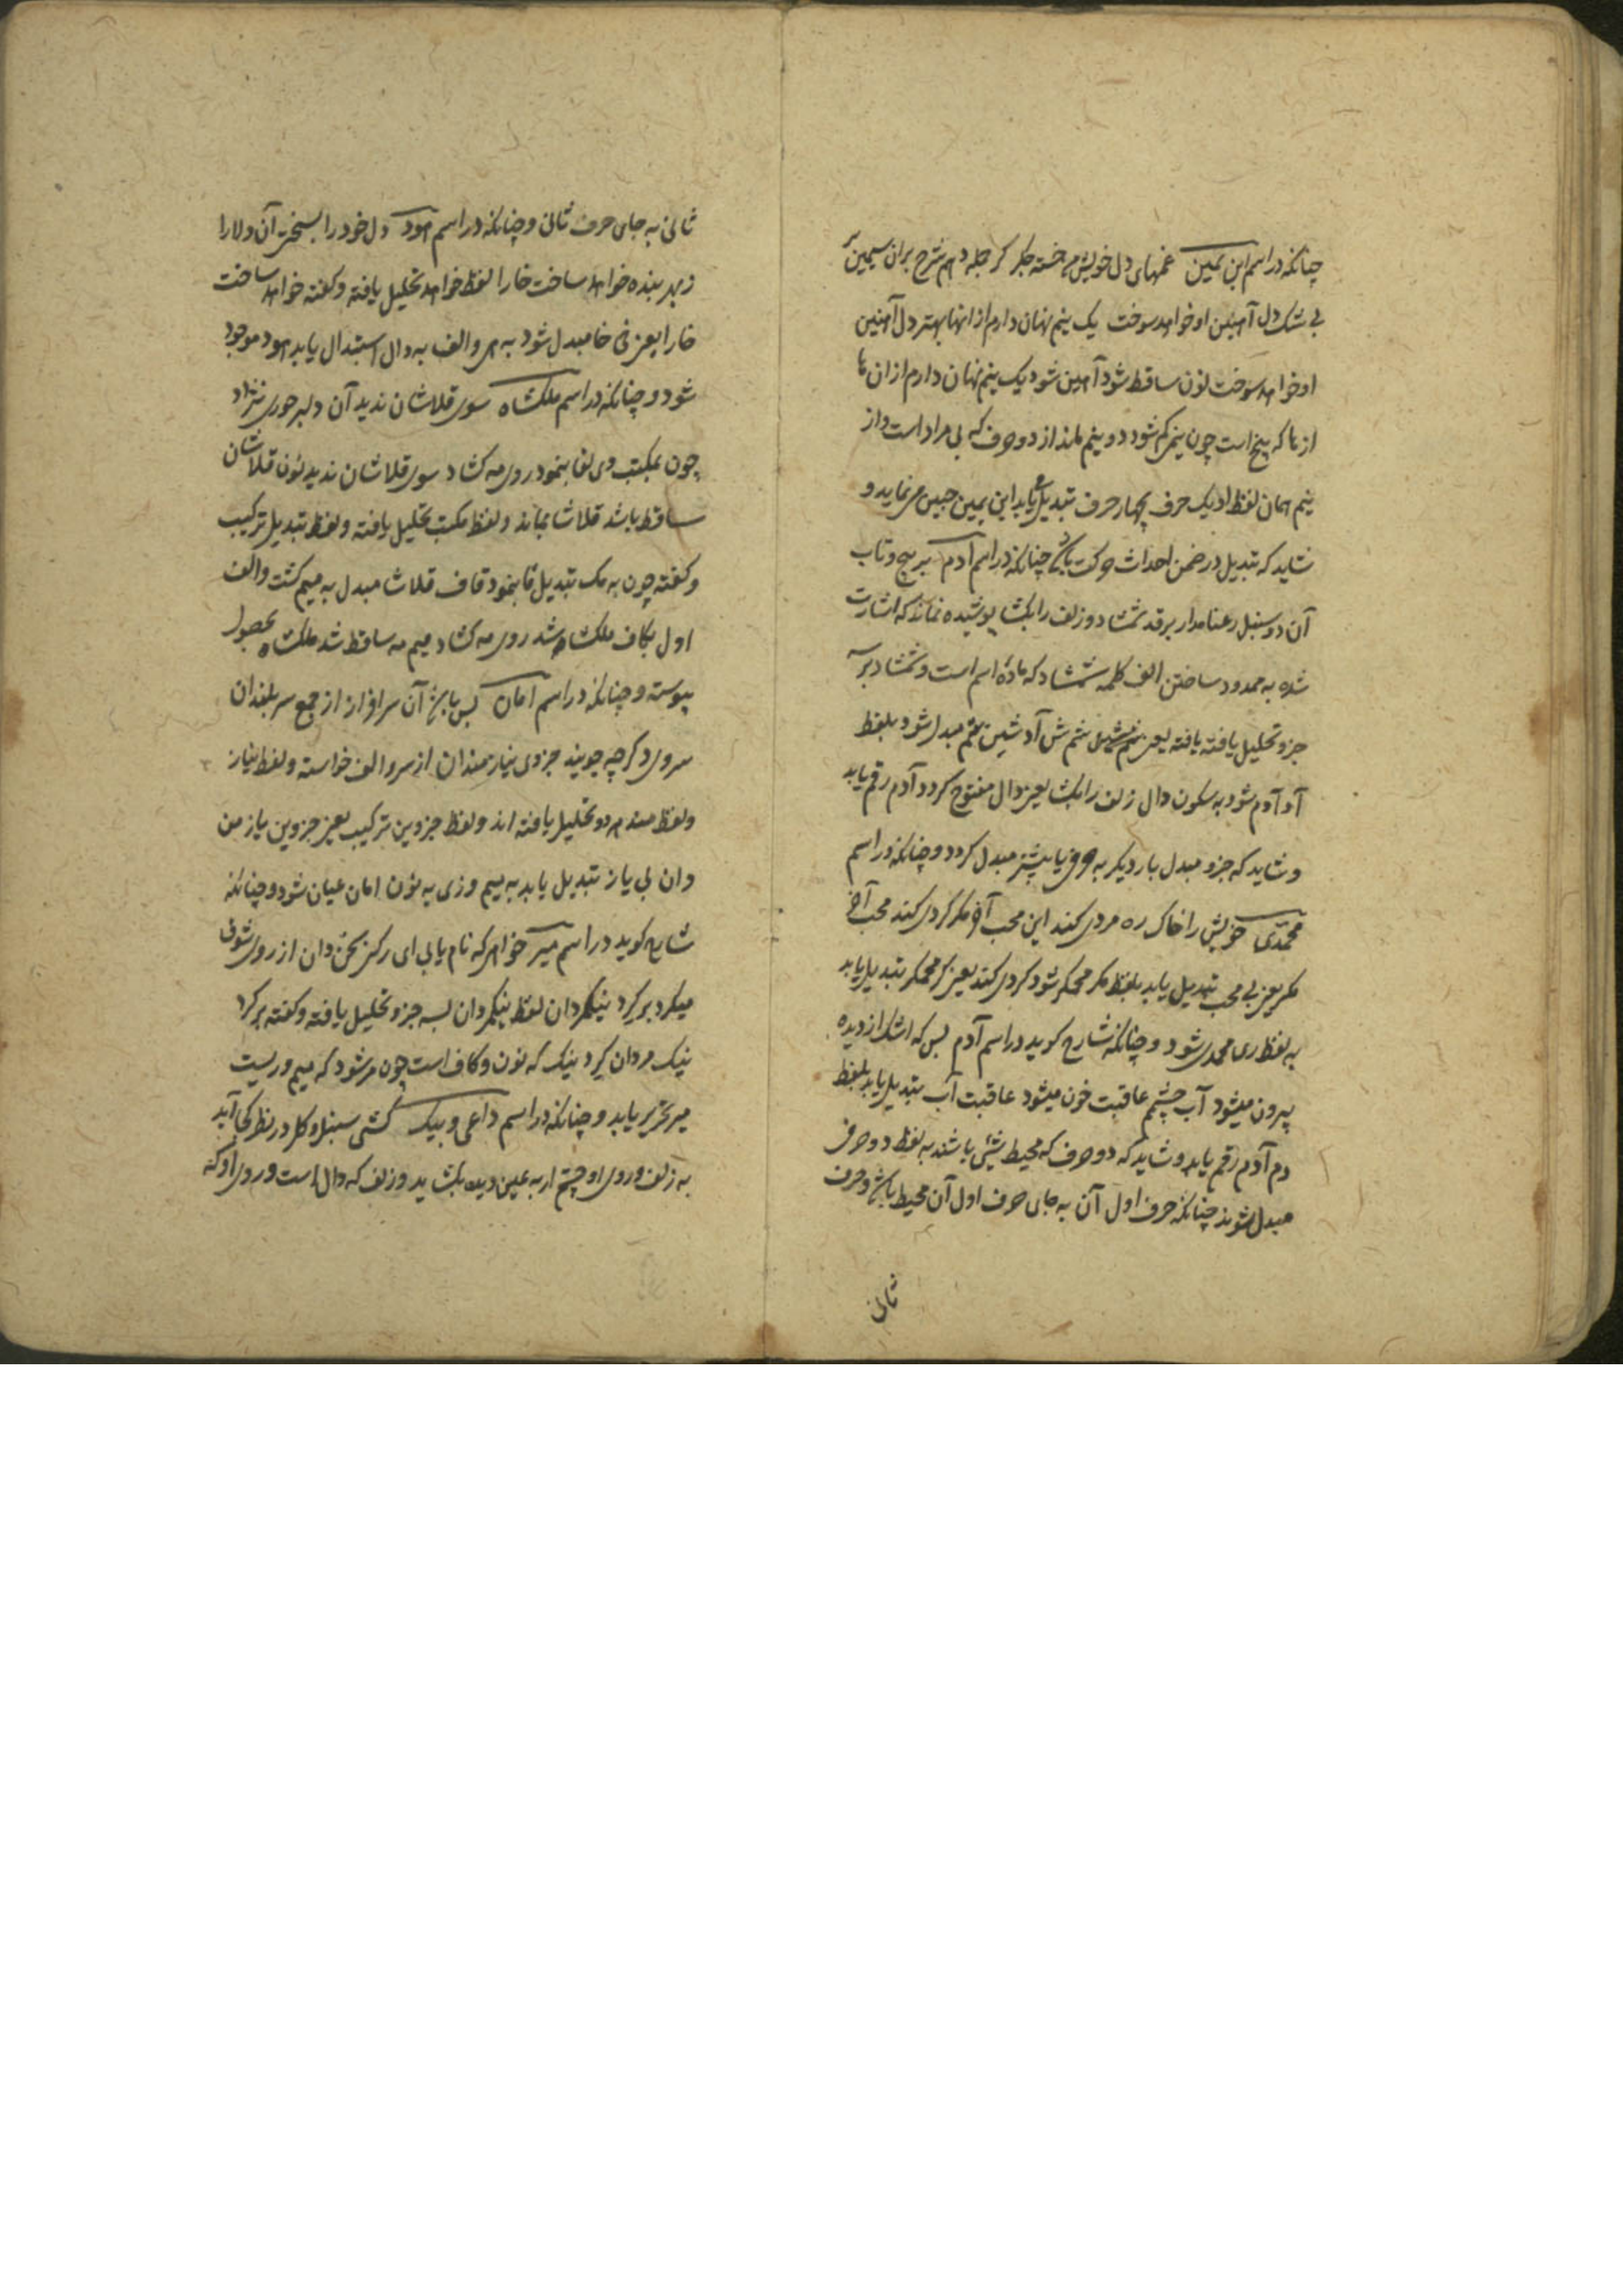 چنانکه در اسم ابن یمین غمهای دل خویش من خسته جکر کر جمله دهم شرح بران سیمین بر
بی شک دل آهنین او خواهد سوخت یک نیم نهان دارم از انها بهتر دل آهنین
او خواهد سوخت نون ساقط شود آهین شود یک نیم نهان دارم از ان ها
از ها که پنج است چون نیم کم شود دو و نیم ماند از دو حرف که بی مراد است و از
نیم همان لفظ او یک حرف بچهار حرف تبدیل یابد ابن یمین جبین می نماید و
شاید که تبدیل در ضمن احداث حرکت باشد چنانکه در اسم آدم بر پیچ و تاب
آن دو سنبل رعنا مدار بر قد شمشاد دو زلف را بکشا پوشیده نماند که اشارت
شده به ممدود ساختن الف کلمه شمشاد که ماده اسم است و شمشاد بر سه
جزو تحلیل یافته یافته یعنی شم ش آد شین شم مبدل شود بلفظ
آد آدم شود به سکون دال زلف را بکشا یعنی دال مفتوح کردد آدم رقم یابد
و شاید که جزو مبدل بار دیکر به حرفی یا بیشتر مبدل کردد و چنانکه در اسم
محمدی خویش را خاک ره مردی کند این محب آخر مکر کردی کند محب آخر
مکر یعنی بی محب تبدیل یابد بلفظ مکر محمکر شود کردی کند یعنی کر محمکر تبدیل یابد
به لفظ دی محمدی شود و چنانکه شارح کوید در اسم آدم بس که اشک از دیده
بیرون میشود آب چشمم عاقبت خون میشود عاقبت آب تبدیل یابد بلفظ
دم آدم رقم یابد و شاید که دو حرف که محیط شیٔی باشند به لفظ دو حرفی
مبدل شوند چنانکه حرف اول آن به جای حرف اول آن محیط باشد و حرف
ثانی
ثانی به جای حرف ثانی و چنانکه در اسم هود دل خود را بسختی آن دلارا
زبهر بنده خواهد ساخت خارا لفظ خواهد تحلیل یافته و کفته خواهد ساخت
خارا یعنی خا مبدل شود به هی و الف به دال استبدال یابد هود موجود
شود و چنانکه در اسم ملکشاه سوی قلاشان ندید آن دلبر حوری نژاد
چون بمکتب وی لقا بنمود روی مه کشاد سوی قلاشان ندید نون قلاشان
ساقط باشد قلاشا بماند و لفظ مکتب تحلیل یافته و لفظ تبدیل ترکیب
و کفته چون به مک تبدیل قا بنمود قاف قلاشا مبدل به میم کشت و الف
اول بکاف ملکشاه شد روی مه کشاد میم مه ساقط شد ملکشاه بحصول
پیوسته و چنانکه در اسم امان بس باشد آن سرافراز از جمع سربلندان
سروی و کرچه جویند جزوی نیازمندان از سرو الف خواسته و لفظ نیاز
و لفظ مند هر دو تحلیل یافته اند و لفظ جزوین ترکیب یعنی جزوین یاز من
دان بی یاز تبدیل یابد به میم و زی به نون امان عیان شود و چنانکه
شارح کوید در اسم میر خواهی که نام یابی ای رکن سخن دان از روی شوق
میکرد بر کرد نیکمردان لفظ نیکمردان بسه جزو تحلیل یافته و کفته بر کرد
نیک مر دان کرد نیک که نون و کاف است چون مر شود که میم و ریست
میر تحریر یابد و چنانکه در اسم داعی و بیک کشی سنبل و کل در نظر کجا آید
به زلف و روی او چشم ار به عین دیده بکشاید و زلف که دال است و روی او که